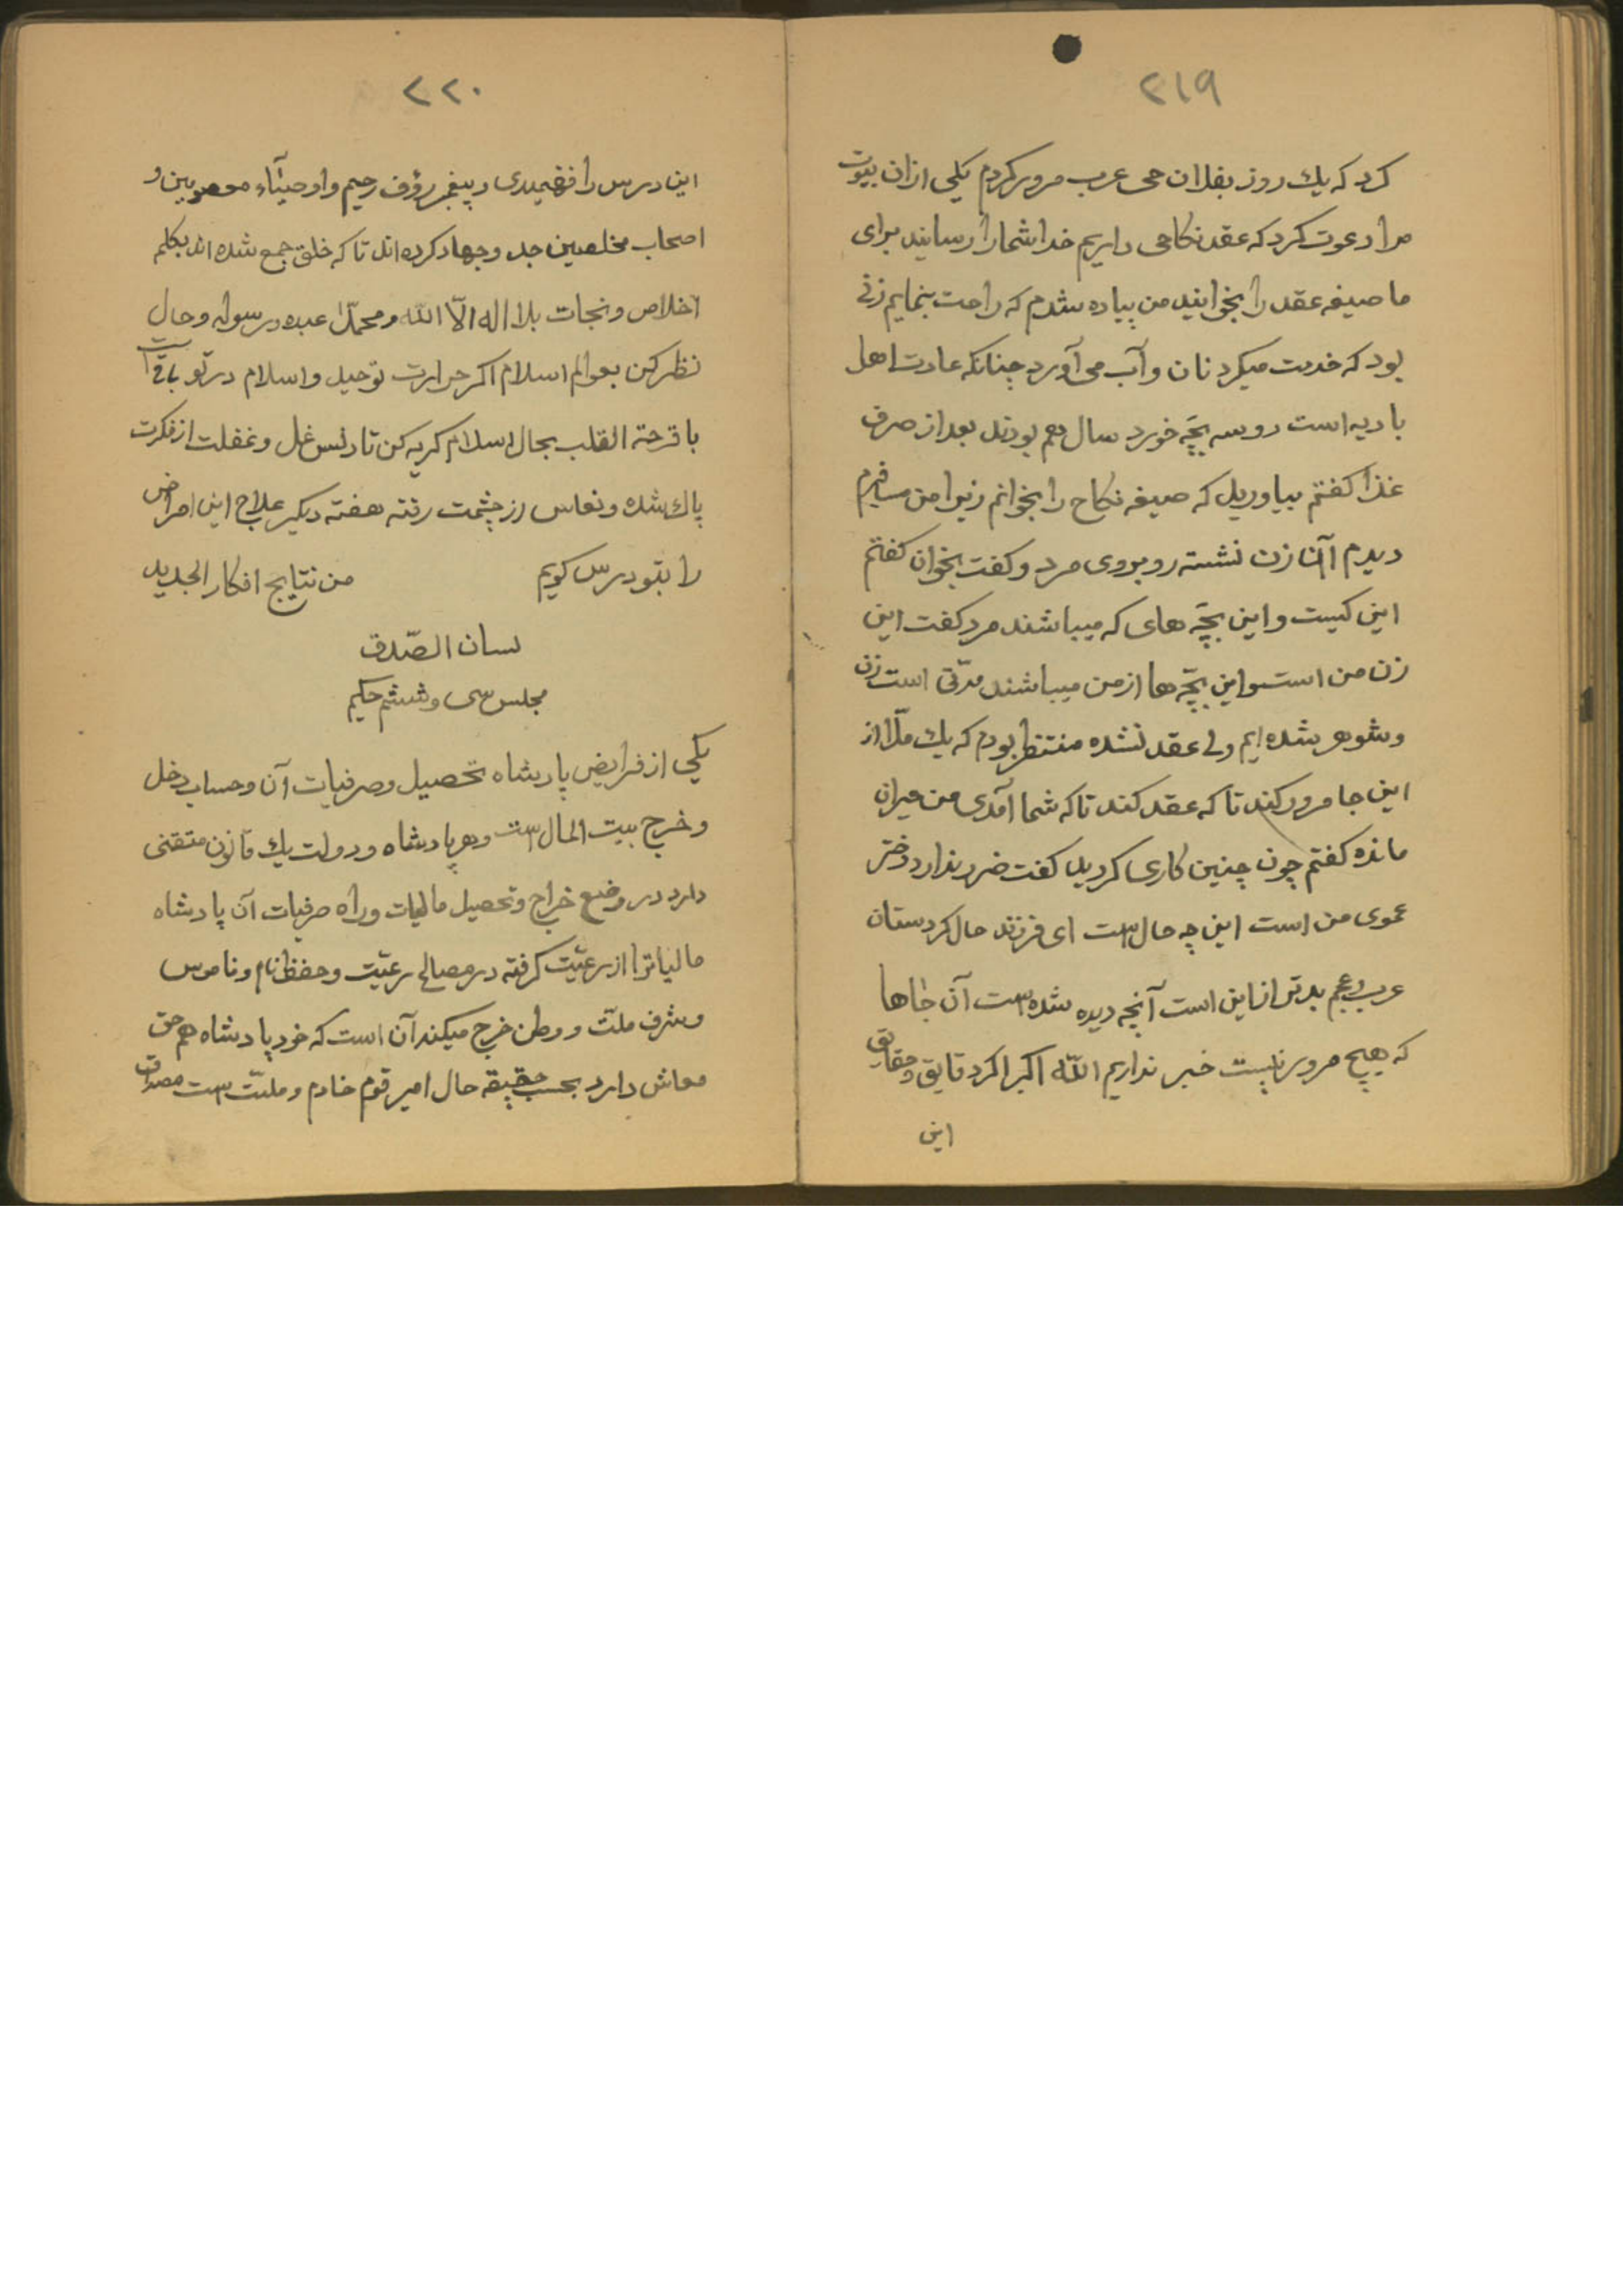 ۲۱۹
کرد که یك روز بفلان حی عرب مرور کردم یکی ازان بیوت
مرا دعوت کرد که عقد نکاحی داریم خدا شما را رسانید برای
ما صیغه عقد را بخوانید من پیاده شدم که راحت بنمایم زنی
بود که خدمت میکرد نان و آب می آورد چنانکه عادت اهل
بادیه است دو سه بچّه خورد سال هم بودند بعد از صرف
غذا کفتم بیاورید که صیغه نکاح را بخوانم زیرا من مسافرم
دیدم آن زن نشسته روبروی مرد و کفت بخوان کفتم
این کیست و این بچّه های که میباشند مرد کفت این
زن من است و این بچّه ها از من میباشند مدّتی است زن
و شوهر شده ایم ولی عقد نشده منتظر بودم که یك ملّا از
این جا مرور کند تا که عقد کند تا که شما آمدی من حیران
مانده کفتم چون چنین کاری کردید کفت ضرر ندارد دختر
عموی من است این چه حال است ای فرزند حال کردستان
عرب و عجم بدتر از این است آنچه دیده شده است آن جاها
که هیچ مرور نیست خبر نداریم اللّه اکبر اکر دقایق و حقایق
این
۲۲۰
این درس را فهمیدی و پیغمبر رؤف رحیم و اوصیآء معصومین و
اصحاب مخلصین جد و جهاد کرده اند تا که خلق جمع شده اند بکلمه
اخلاص و نجات بلا اله الّا اللّه و محمّداً عبده و رسوله و حال
نظر کن بعوالم اسلام اکر حرارت توحید و اسلام در تو باقی است
با قرحة القلب بحال اسلام کریه کن تا دنس غل و غفلت از فکرت
پاك شده و نعاس از چشمت رفته هفته دیکر علاج این امراض
را بتو درس کویم من نتایج افکار الجدید
لسان الصّدق
مجلس سی و ششم حکیم
یکی از فرایض پادشاه تحصیل و صرفیات آن و حساب دخل
و خرج بیت المال است و هر پادشاه و دولت یك قانون متقنی
دارد در وضع خراج و تحصیل مالیات و راه صرفیات آن پادشاه
مالیات را از رعیّت کرفته در مصالح رعیّت و حفظ نام و ناموس
و شرف ملّت و وطن خرج میکند آن است که خود پادشاه هم حق
معاش دارد بحسب حقیقه حال امیر قوم خادم و ملّت است مصداق